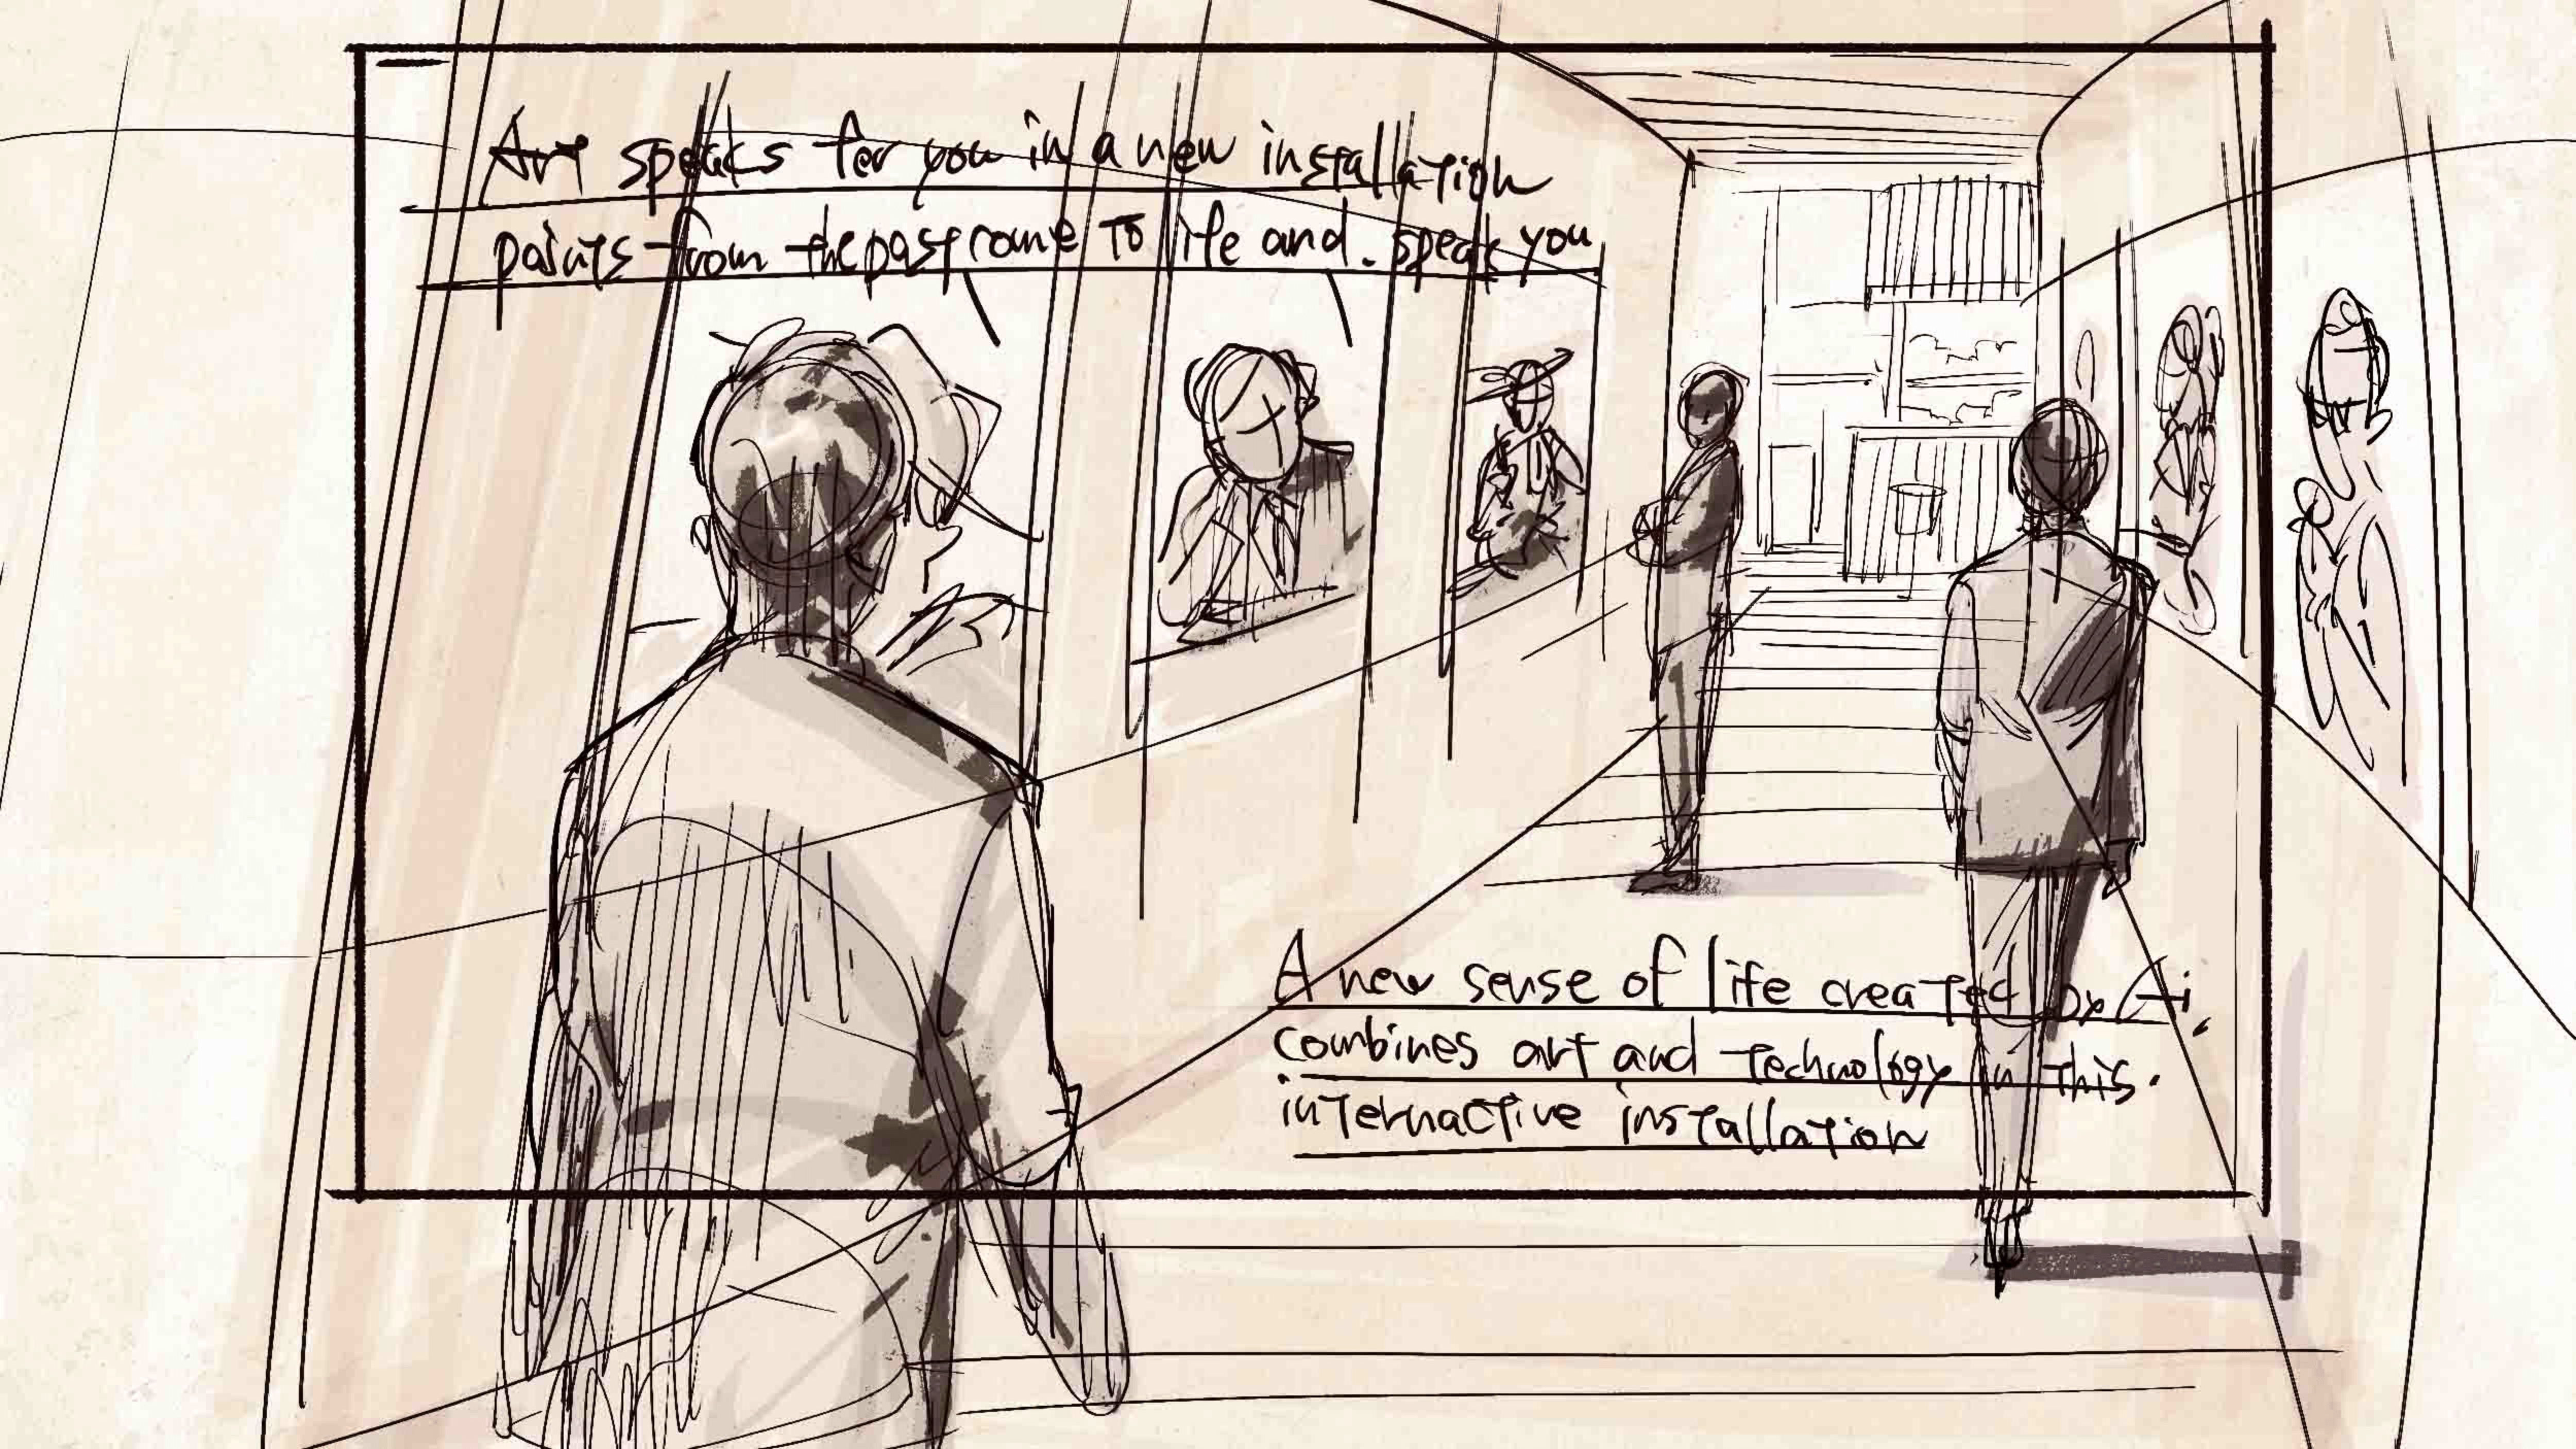 Art speaks for you in a new installation
paints from the past come to life and. speak you
A new sense of life created by Ai,
combines art and technology in this.
internactive installation